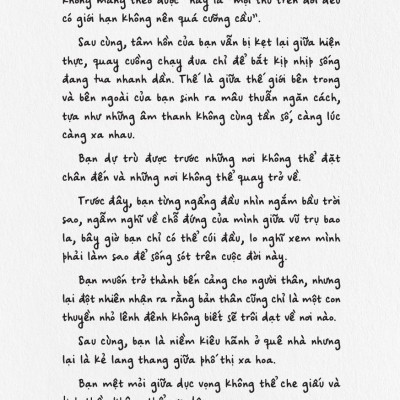 không mang theo được" hay là "mọi thứ trên đời đều
có giới hạn không nên quá cưỡng cầu".
Sau cùng, tâm hồn của bạn vẫn bị kẹt lại giữa hiện
thực, quay cuồng chạy đua chỉ để bắt kịp nhịp sống
đang tua nhanh dần. Thế là giữa thế giới bên trong
và bên ngoài của bạn sinh ra mâu thuẫn ngăn cách,
tựa như những âm thanh không cùng tần số, càng lúc
càng xa nhau.
Bạn dự trù được trước những nơi không thể đặt
chân đến và những nơi không thể quay trở về.
Trước đây, bạn từng ngẩng đầu nhìn ngắm bầu trời
sao, ngẫm nghĩ về chỗ đứng của mình giữa vũ trụ bao
la, bây giờ bạn chỉ có thể cúi đầu, lo nghĩ xem mình
phải làm sao để sống sót trên cuộc đời này.
Bạn muốn trở thành bến cảng cho người thân, nhưng
lại đột nhiên nhận ra rằng bản thân cũng chỉ là một con
thuyền nhỏ lênh đênh không biết sẽ trôi dạt về nơi nào.
Sau cùng, bạn là niềm kiêu hãnh ở quê nhà nhưng
lại là kẻ lang thang giữa phố thị xa hoa.
Bạn mệt mỏi giữa dục vọng không thể che giấu và